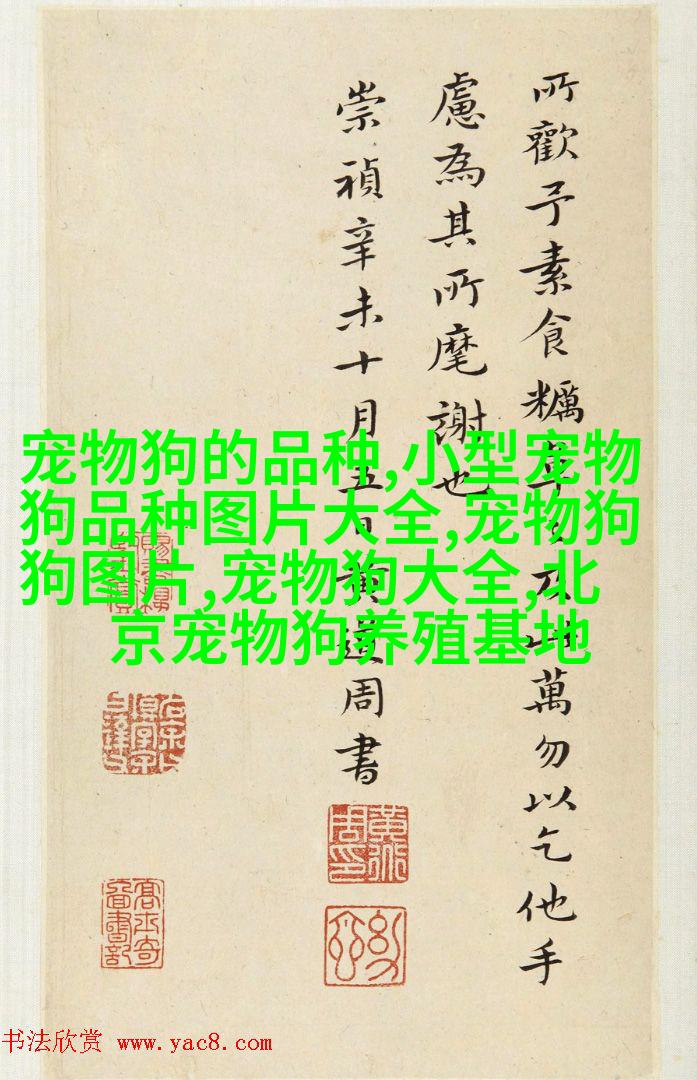 所歡予素食糲
萬勿以乞他手
慮為其所麾謝也
崇禎辛未十月五日黃道周書
宠物狗的品种,小型宠物
狗品种图片大全,宠物狗
狗图片,宠物狗大全,北
京宠物狗养殖基地
黃道
周印
高士奇
圖書記
书法欣赏 www.yac8.com